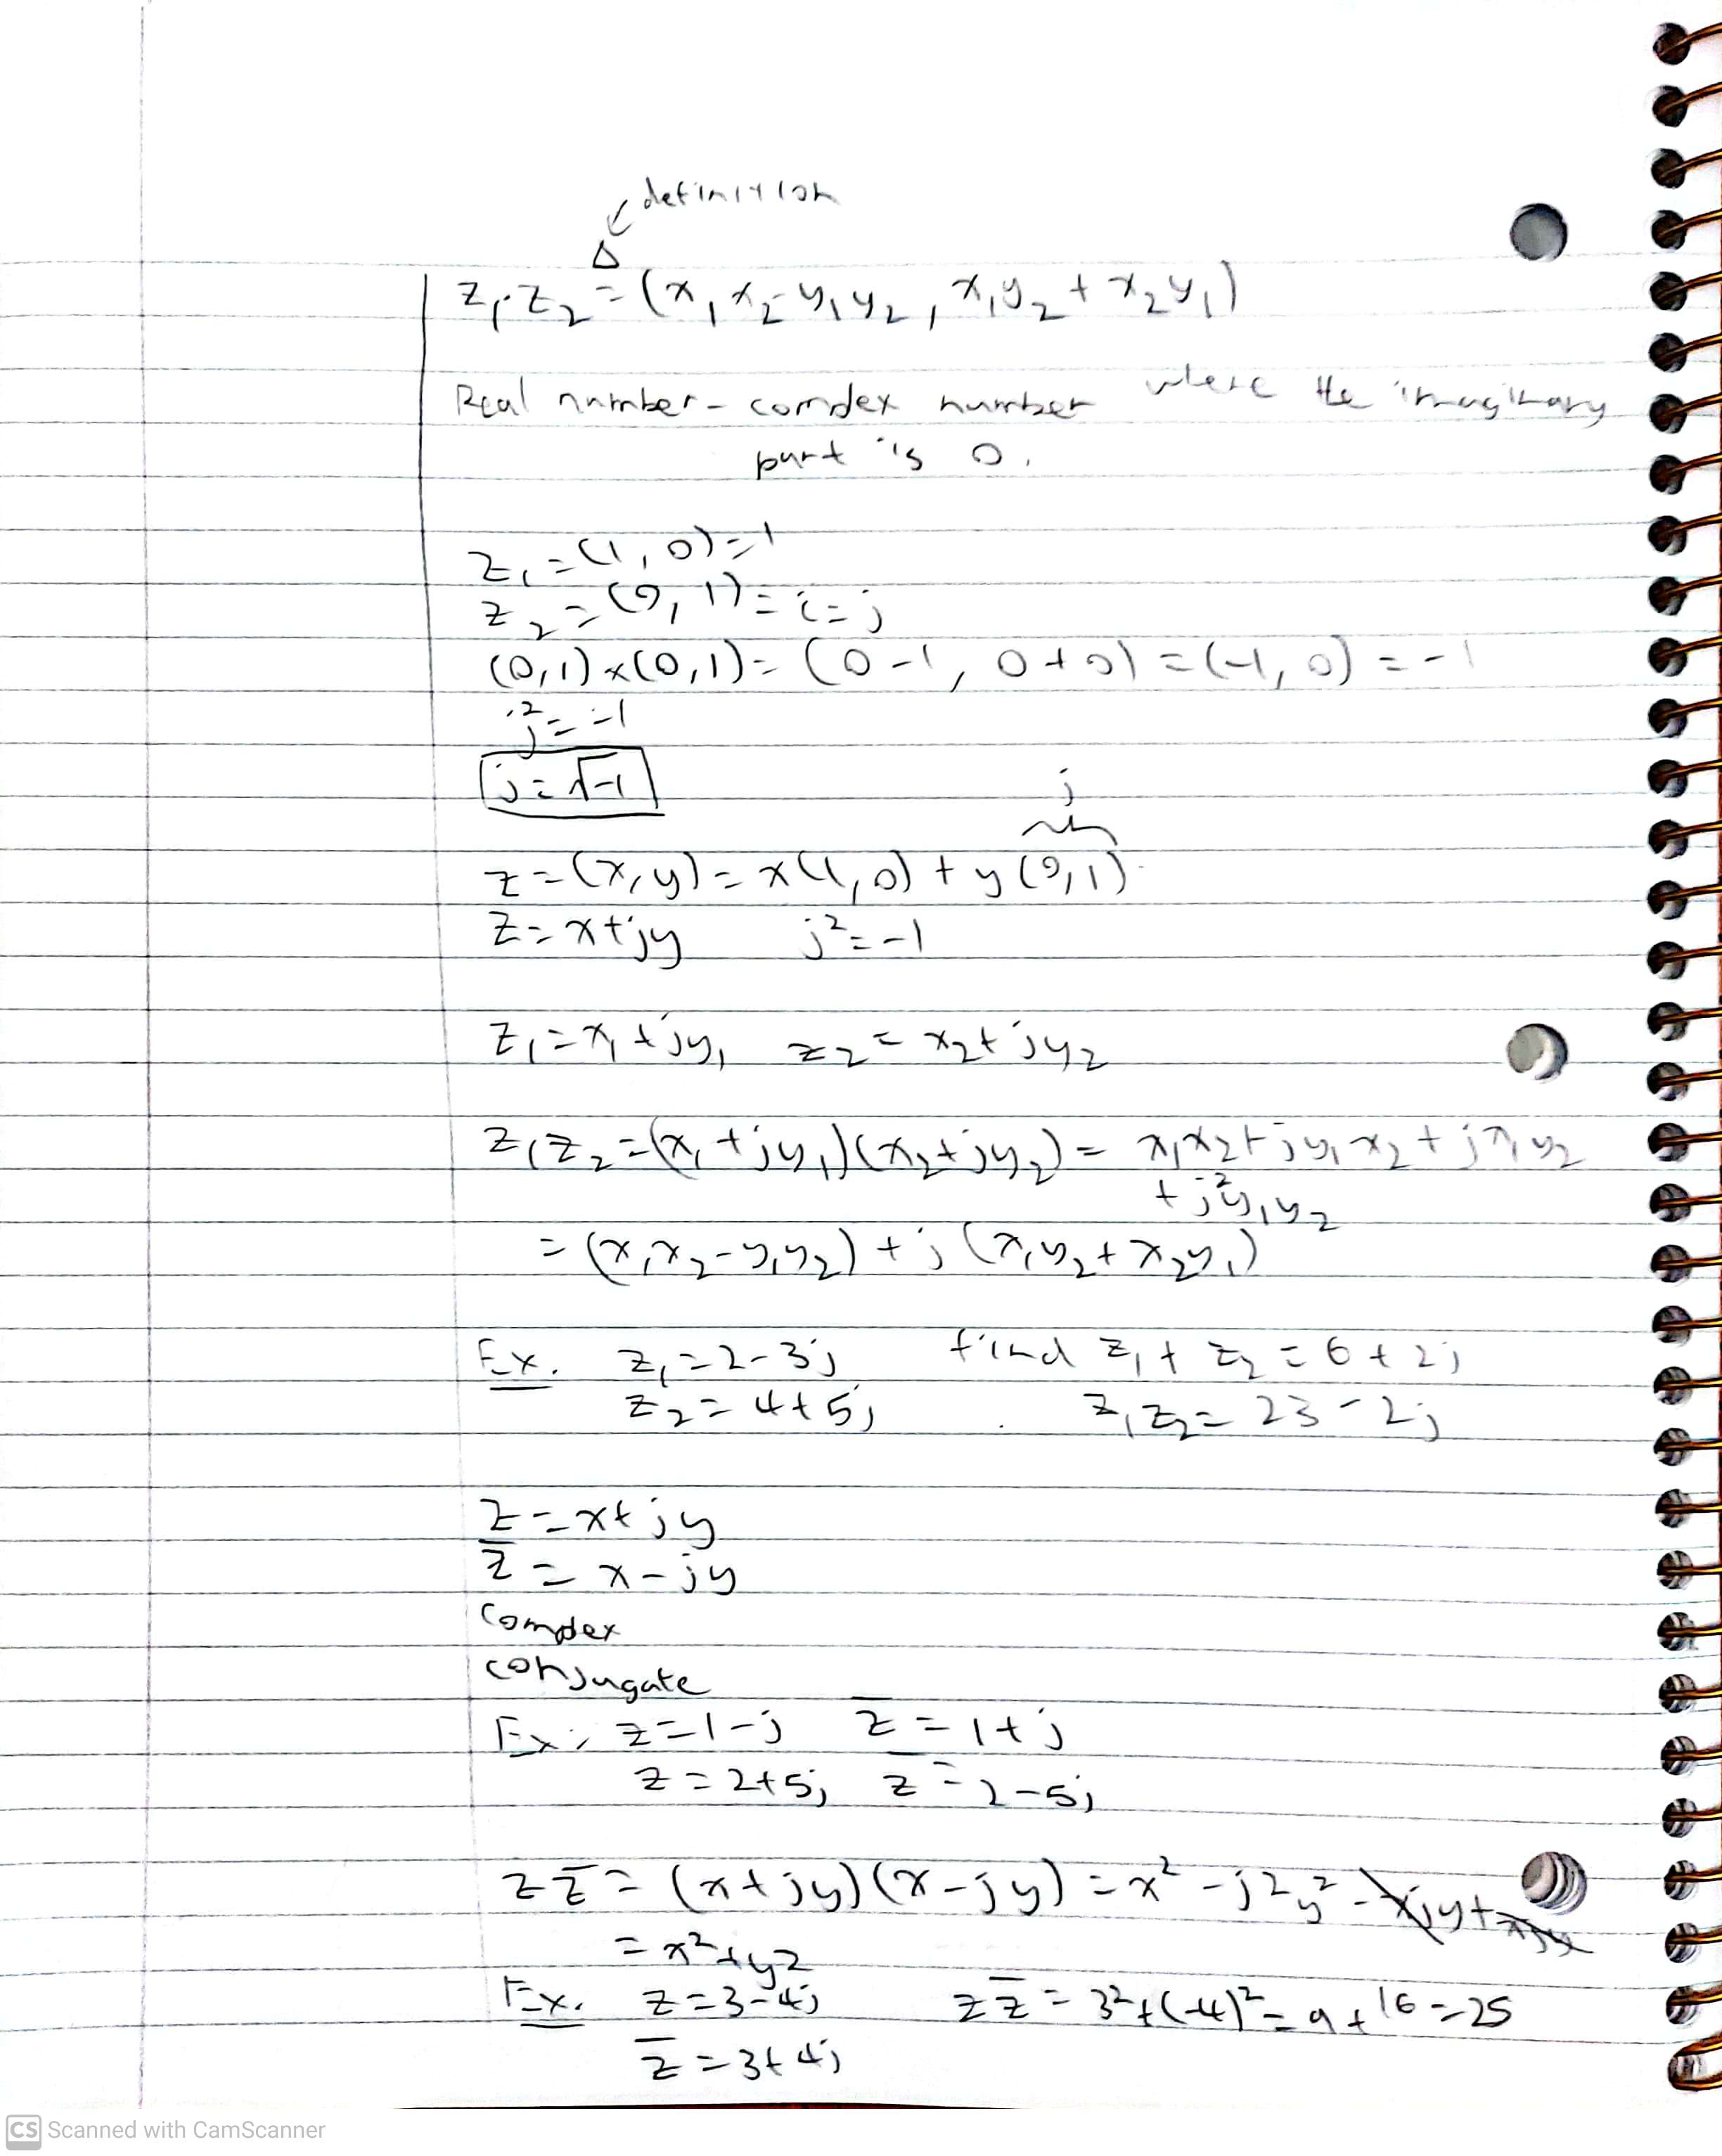 definition
Δ
z₁·z₂ = (x₁x₂-y₁y₂, x₁y₂ + x₂y₁)
Real number - complex number where the imaginary
part is 0.
z₁ = (1, 0) = 1
z₂ = (0, 1) = i = j
(0,1) × (0,1) = (0-1, 0+0) = (-1, 0) = -1
j² = -1
j = √-1
j
z = (x, y) = x(1, 0) + y(0, 1)
z = x+jy j² = -1
z₁ = x₁ + jy₁ z₂ = x₂ + jy₂
z₁z₂ = (x₁ + jy₁)(x₂ + jy₂) = x₁x₂ + jy₁x₂ + jx₁y₂
+ j²y₁y₂
= (x₁x₂ - y₁y₂) + j(x₁y₂ + x₂y₁)
Ex. z₁ = 2-3j find z₁ + z₂ = 6 + 2j
z₂ = 4+5j z₁z₂ = 23 - 2j
z = x+jy
z̄ = x-jy
complex
conjugate
Ex. z = 1-j z̄ = 1+j
z = 2+5j z̄ = 2-5j
zz̄ = (x+jy)(x-jy) = x² - j²y² - xjy + xjy
= x²+y²
Ex. z = 3-4j zz̄ = 3²+(-4)² = 9+16 = 25
z̄ = 3+4j
CS Scanned with CamScanner